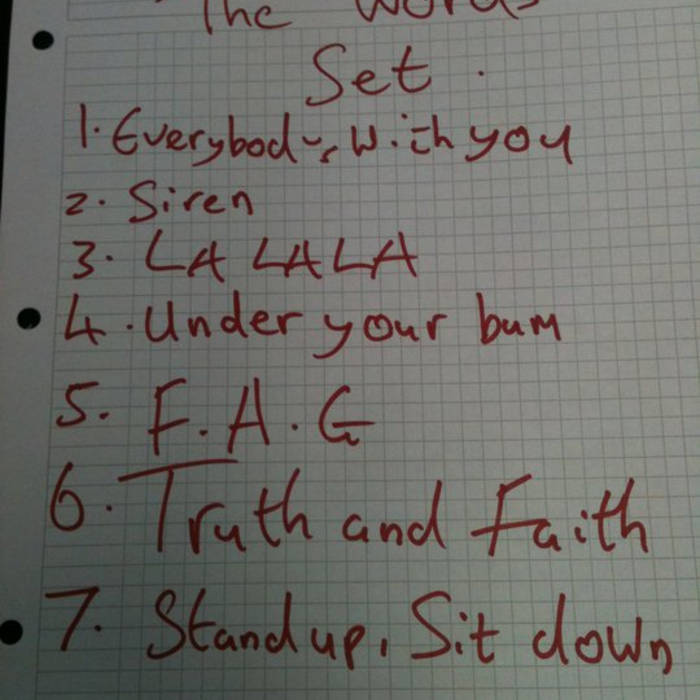 The Words
Set.
1. Everybody's with you
2. Siren
3. LA LA LA
4. Under your bum
5. F.A.G
6. Truth and Faith
7. Stand up, Sit down